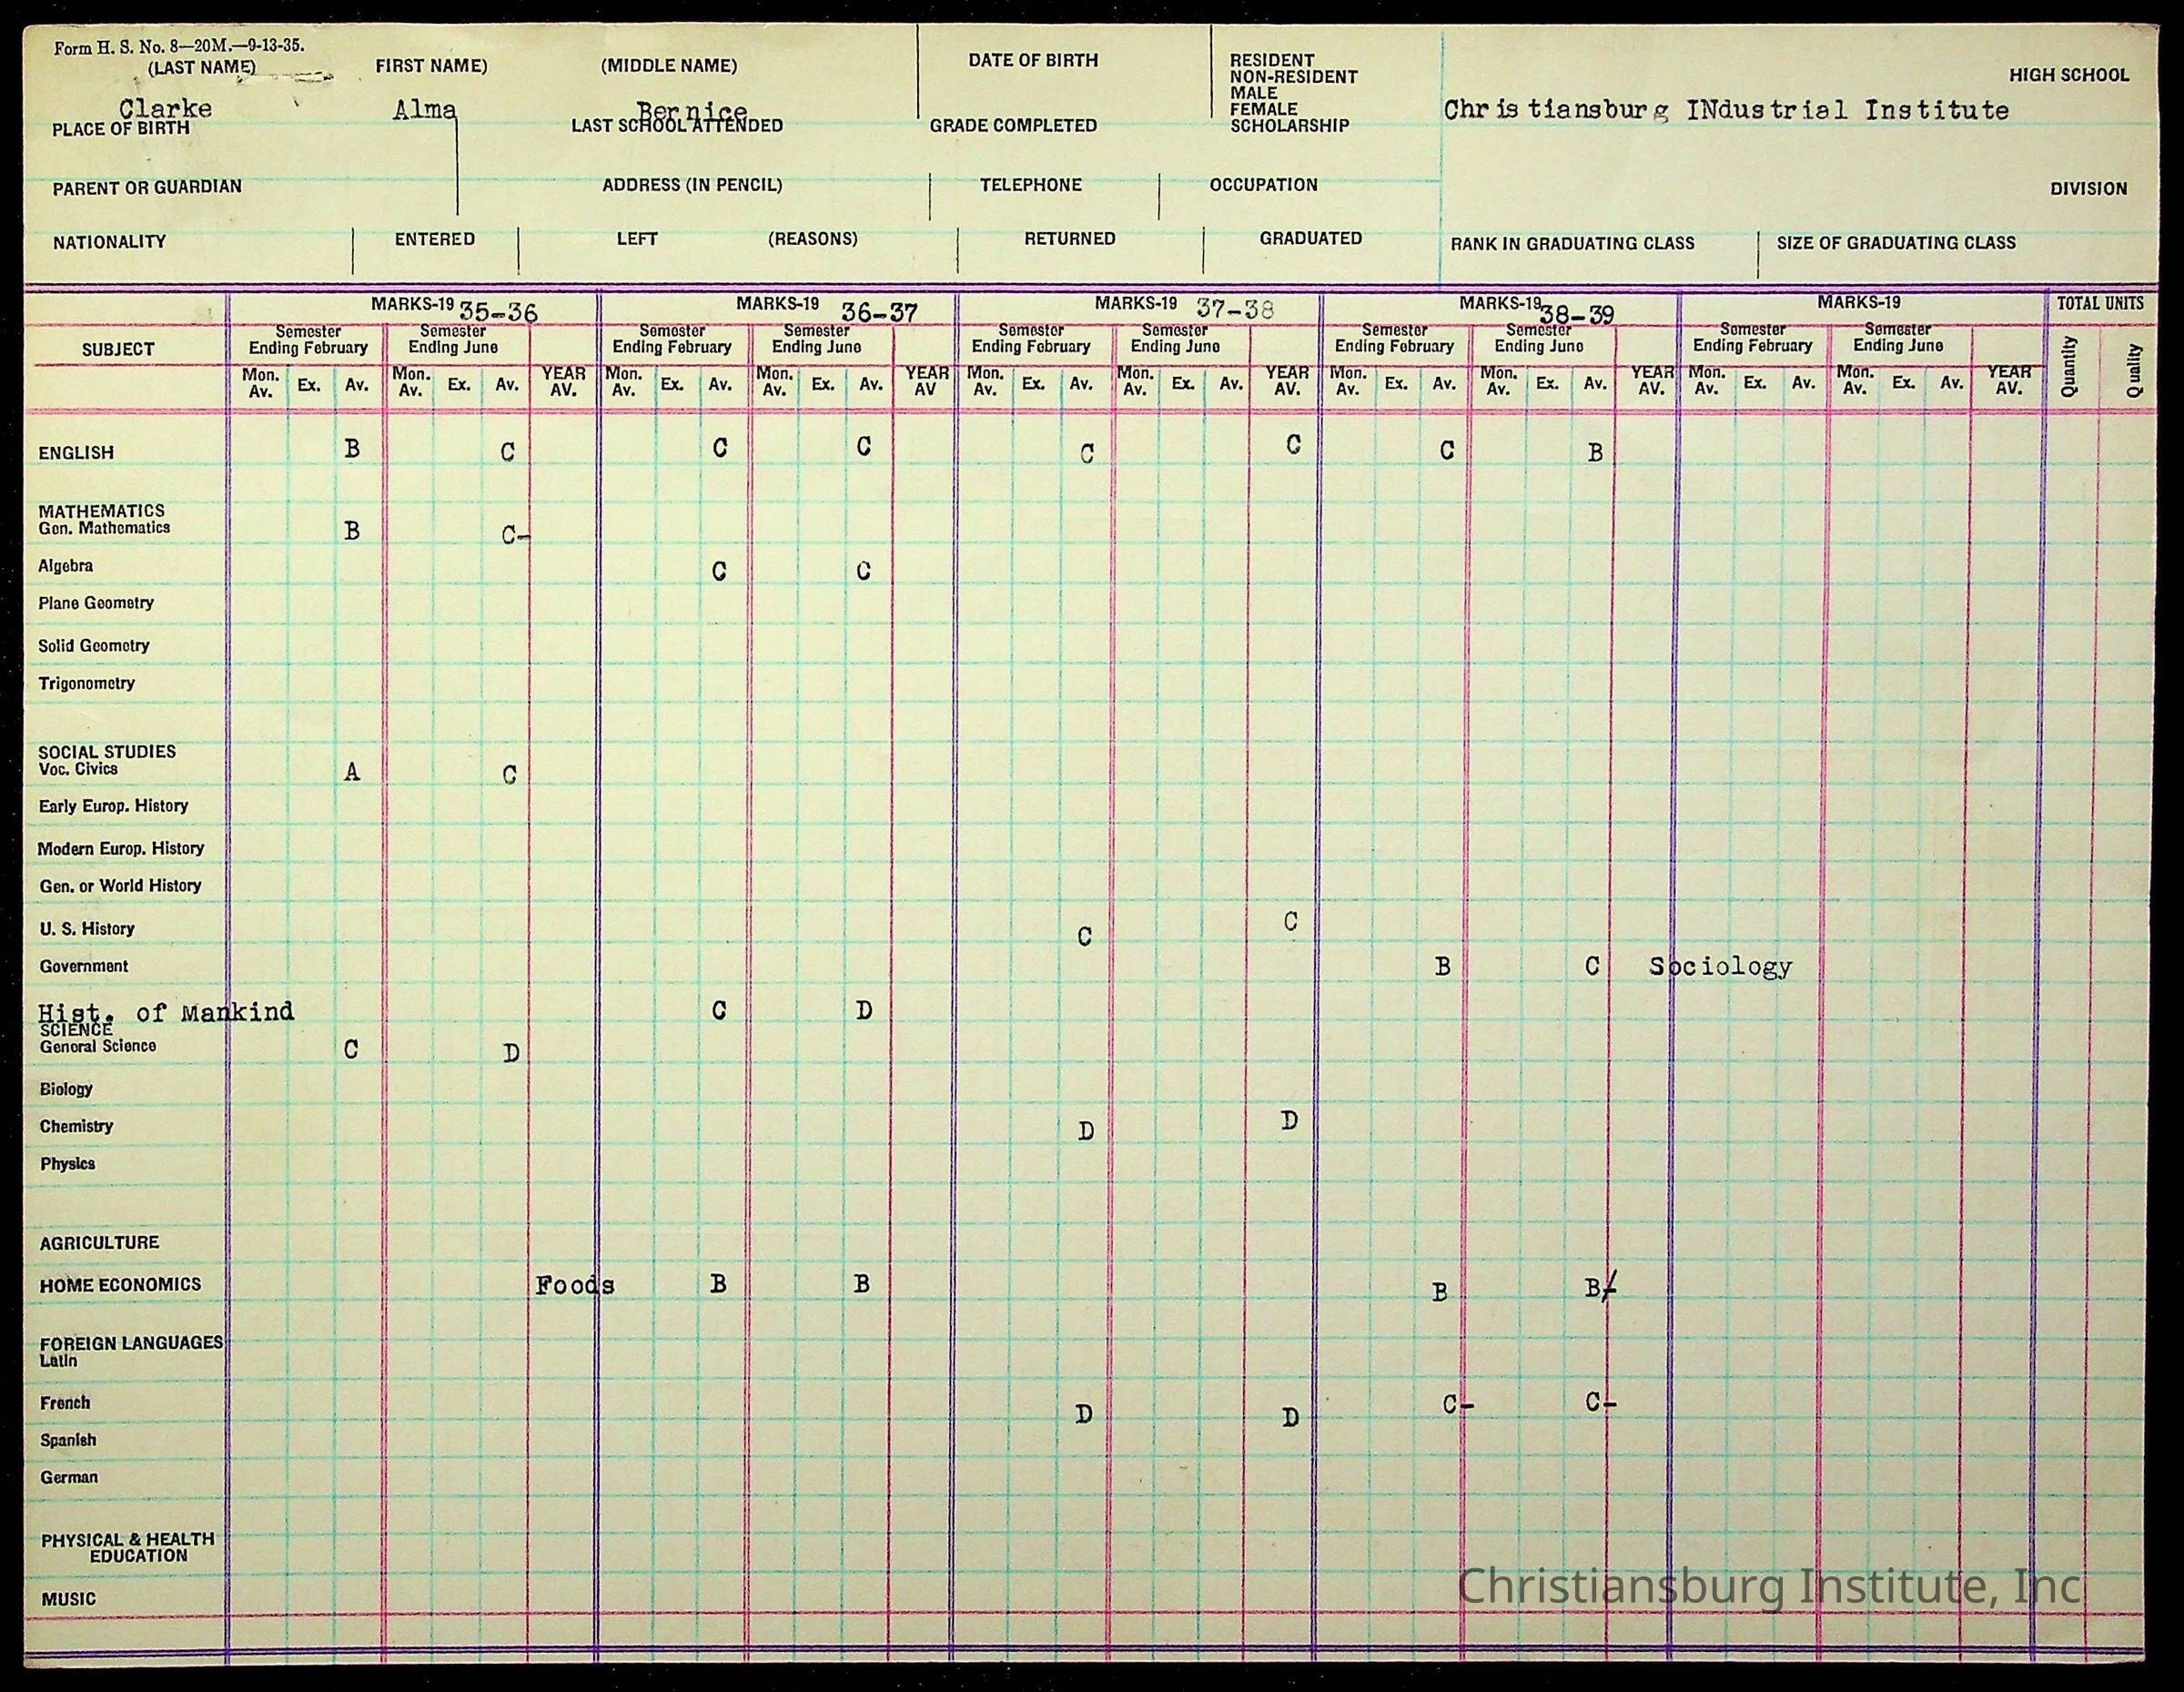 Form H. S. No. 8—20M.—9-13-35.
(LAST NAME) FIRST NAME) (MIDDLE NAME) DATE OF BIRTH RESIDENT
NON-RESIDENT
MALE
FEMALE
SCHOLARSHIP
HIGH SCHOOL
Clarke Alma Bernice Christiansburg INdustrial Institute
PLACE OF BIRTH LAST SCHOOL ATTENDED GRADE COMPLETED
PARENT OR GUARDIAN ADDRESS (IN PENCIL) TELEPHONE OCCUPATION DIVISION
NATIONALITY ENTERED LEFT (REASONS) RETURNED GRADUATED RANK IN GRADUATING CLASS SIZE OF GRADUATING CLASS
MARKS-19 35-36 MARKS-19 36-37 MARKS-19 37-38 MARKS-19 38-39 MARKS-19 TOTAL UNITS
SUBJECT
Semester Semester Semester Semester Semester Semester Semester Semester Semester Semester
Ending February Ending June Ending February Ending June Ending February Ending June Ending February Ending June Ending February Ending June
Mon. Av. Ex. Av. Mon. Av. Ex. Av. YEAR AV. Mon. Av. Ex. Av. Mon. Av. Ex. Av. YEAR AV Mon. Av. Ex. Av. Mon. Av. Ex. Av. YEAR AV. Mon. Av. Ex. Av. Mon. Av. Ex. Av. YEAR AV. Mon. Av. Ex. Av. Mon. Av. Ex. Av. YEAR AV. Quantity Quality
ENGLISH B C C C C C C B
MATHEMATICS
Gen. Mathematics B C-
Algebra C C
Plane Geometry
Solid Geometry
Trigonometry
SOCIAL STUDIES
Voc. Civics A C
Early Europ. History
Modern Europ. History
Gen. or World History
U. S. History C C
Government B C Sociology
Hist. of Mankind C D
SCIENCE
General Science C D
Biology
Chemistry D D
Physics
AGRICULTURE
HOME ECONOMICS Foods B B B B/
FOREIGN LANGUAGES
Latin
French D D C- C-
Spanish
German
PHYSICAL & HEALTH
EDUCATION
MUSIC
Christiansburg Institute, Inc